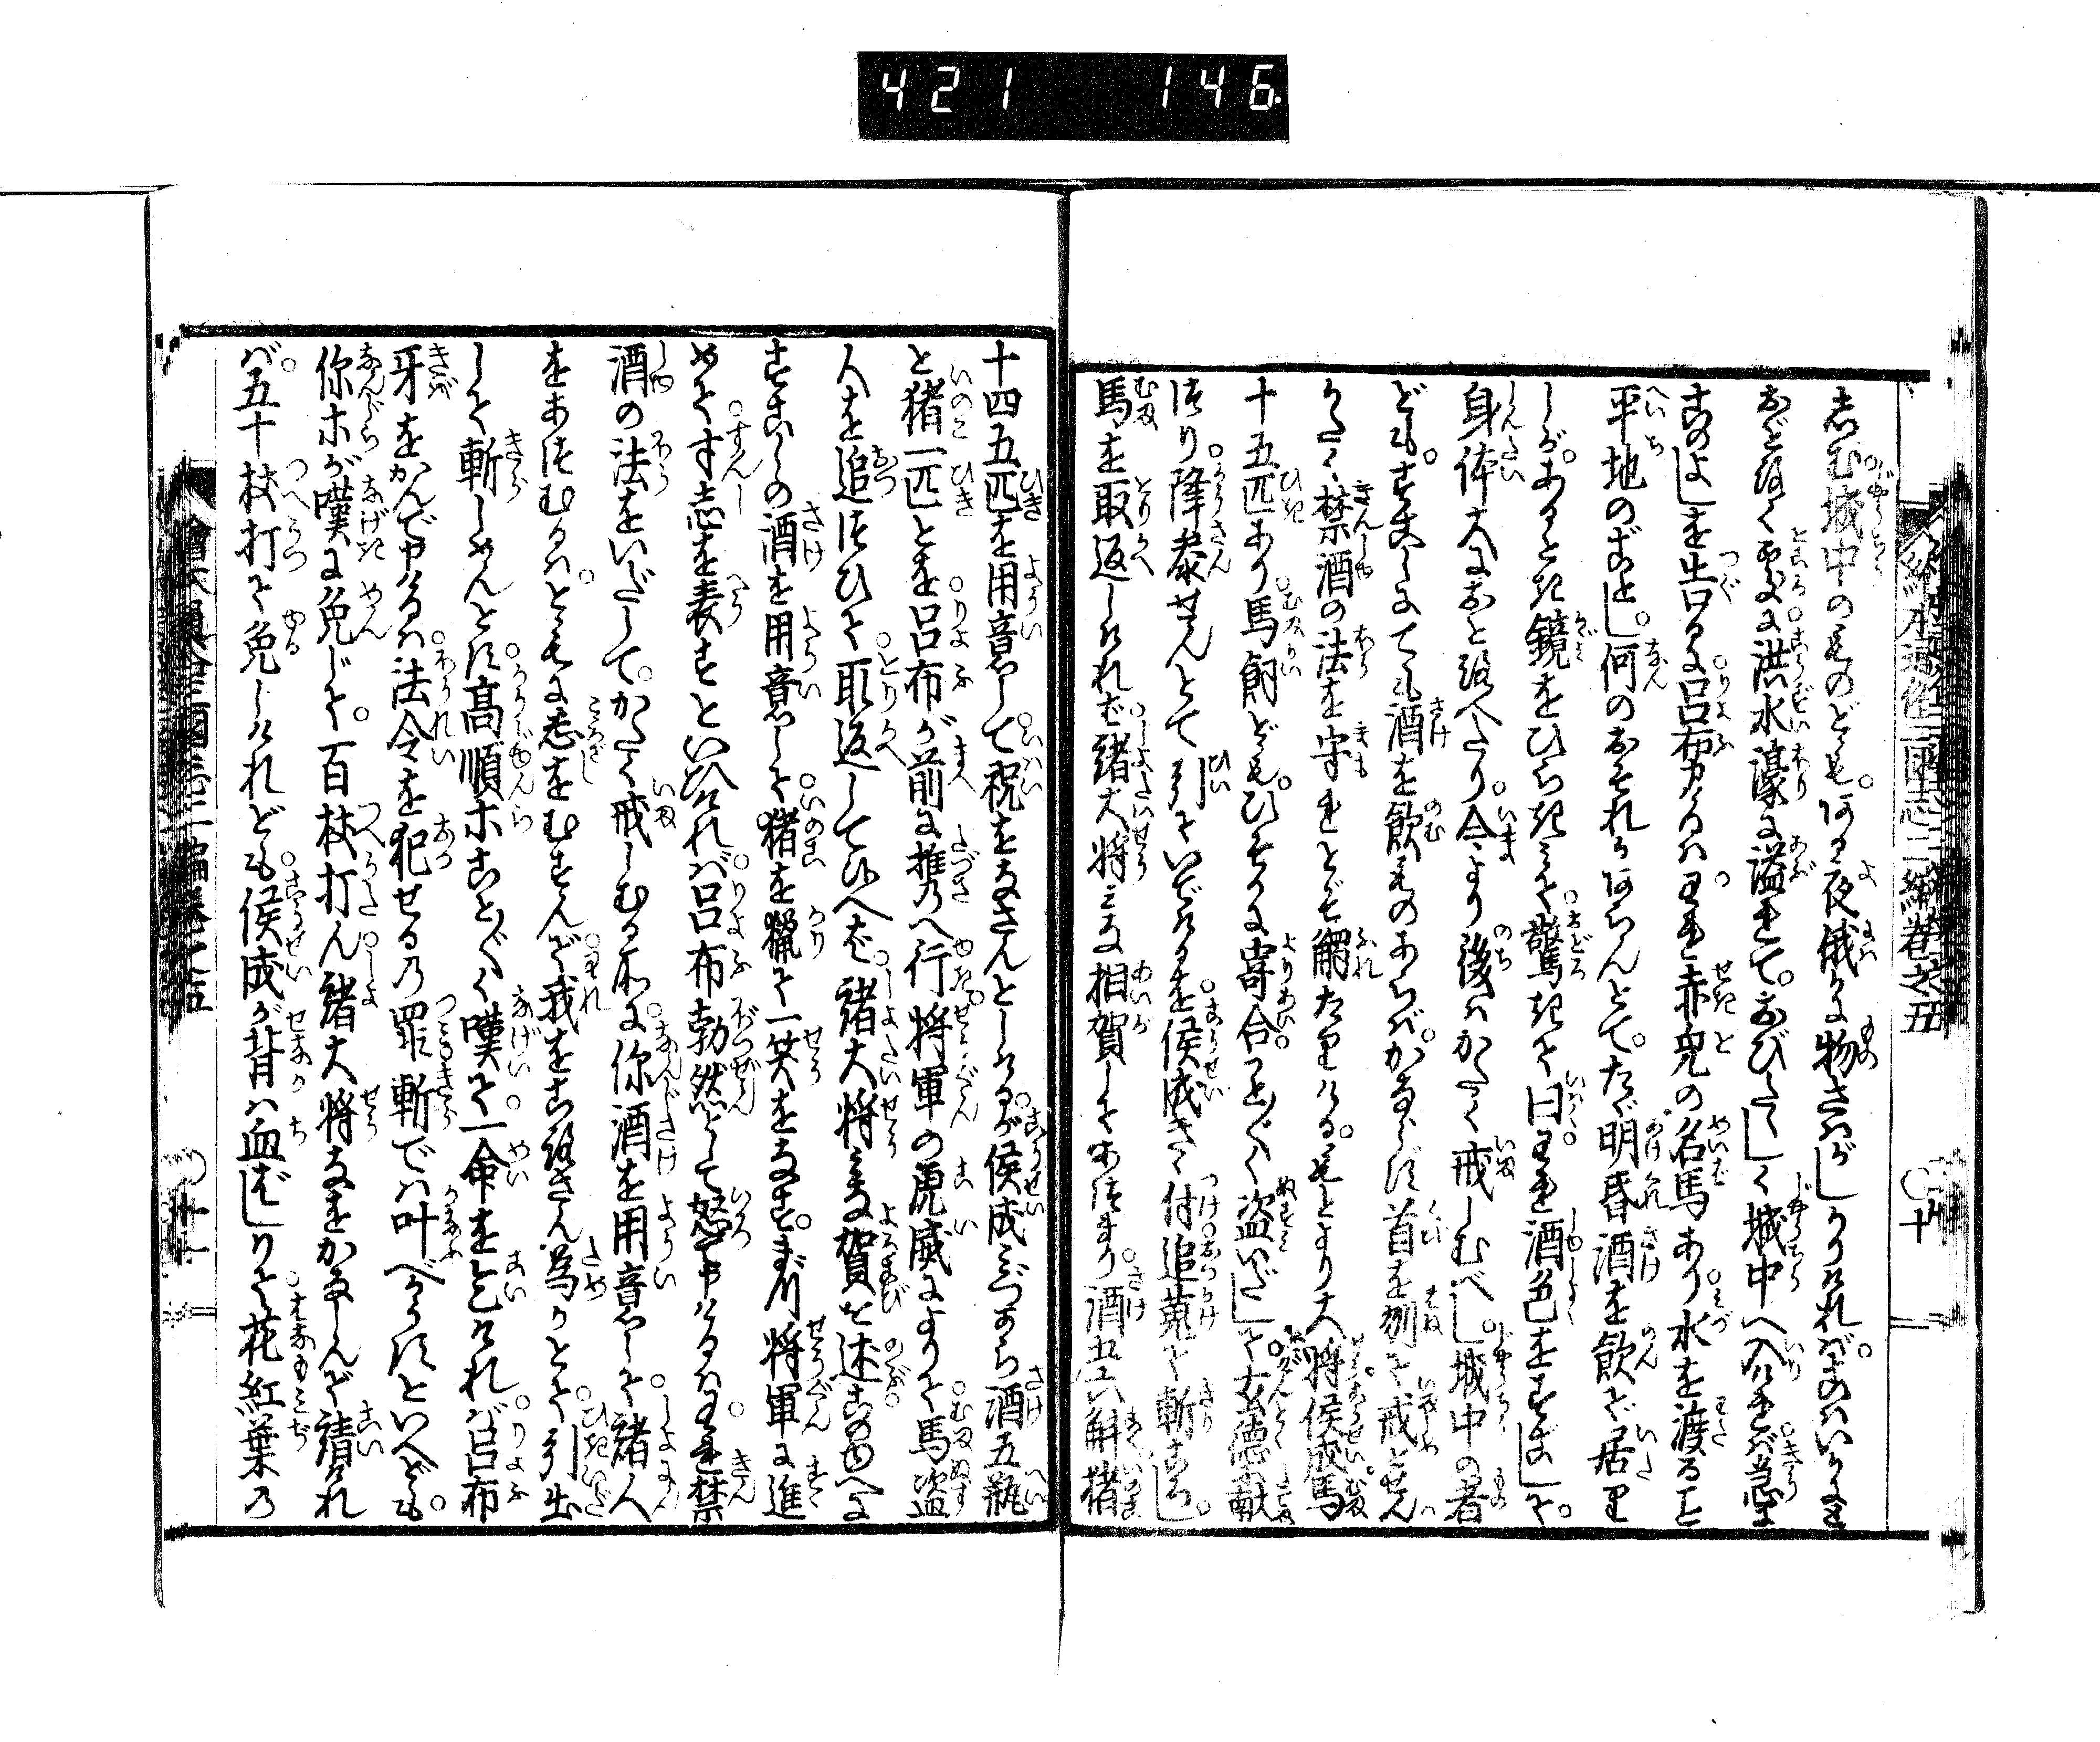 421 146
繪本通俗三國志二編卷之五 〇十
志む城中の者ども。ある夜俄に物さはがしかりければ。こはいかなる
ことなく西よりに洪水濠に溢れて。おびたゝしく城中へ入ければ急ぎ
このよしを告るに呂布申けるは。われ赤兎の名馬あり。水を渡ること
平地のごとし。何のおそれかあらんとて。たゞ明昏酒を飲で居たり
しが。あるとき鏡をひらき見て驚きて曰く。われ酒色をすごして。
身体大におとろへたり。今より後はかたく戒しむべし。城中の者
ども。すこしにても酒を飲ものあらば。かならず首を刎て戒とせん
かたく禁酒の法を守れとぞ觸たりける。こゝより大将侯成馬
十五匹あり。馬飼ども。ひそかに寄合ことごとく盗いだして。玄徳に献
降参せんとて引ていでけるを。侯成きゝ付追蒐て斬ころし。
馬を取返しければ。諸大将みな相賀してあつまり。酒五六斛猪
十四五匹を用意して。祝をなさんとしけるが。侯成みづから酒五瓶
と猪一匹とを。呂布が前に携へ行。将軍の虎威によりて。馬盗
人を追つひて。取返して候へば。諸大将みな賀を述。このゆへに
すこしの酒を用意して。猪を獵て一笑をなす。まづ将軍に進
めて。寸志を表すといひければ。呂布勃然として怒て申けるは。われ禁
酒の法をいだして。かたく戒しむる所に。你酒を用意して。諸人
をあつむるは。ともに志をむすんで。我をころさん為かとて。引出
して斬しめんとす。高順等ことごとく嘆て。一命を乞ければ。呂布
牙をかんで申けるは。法令を犯せるの罪。斬では叶べからずといへども。
你等が嘆に免じて。百杖打ん。諸大将なをかなしんで請けれ
ば。五十杖打て免しけれども。侯成が背は血ばしりて。花紅葉の
繪本通俗三國志二編卷之五 〇十一